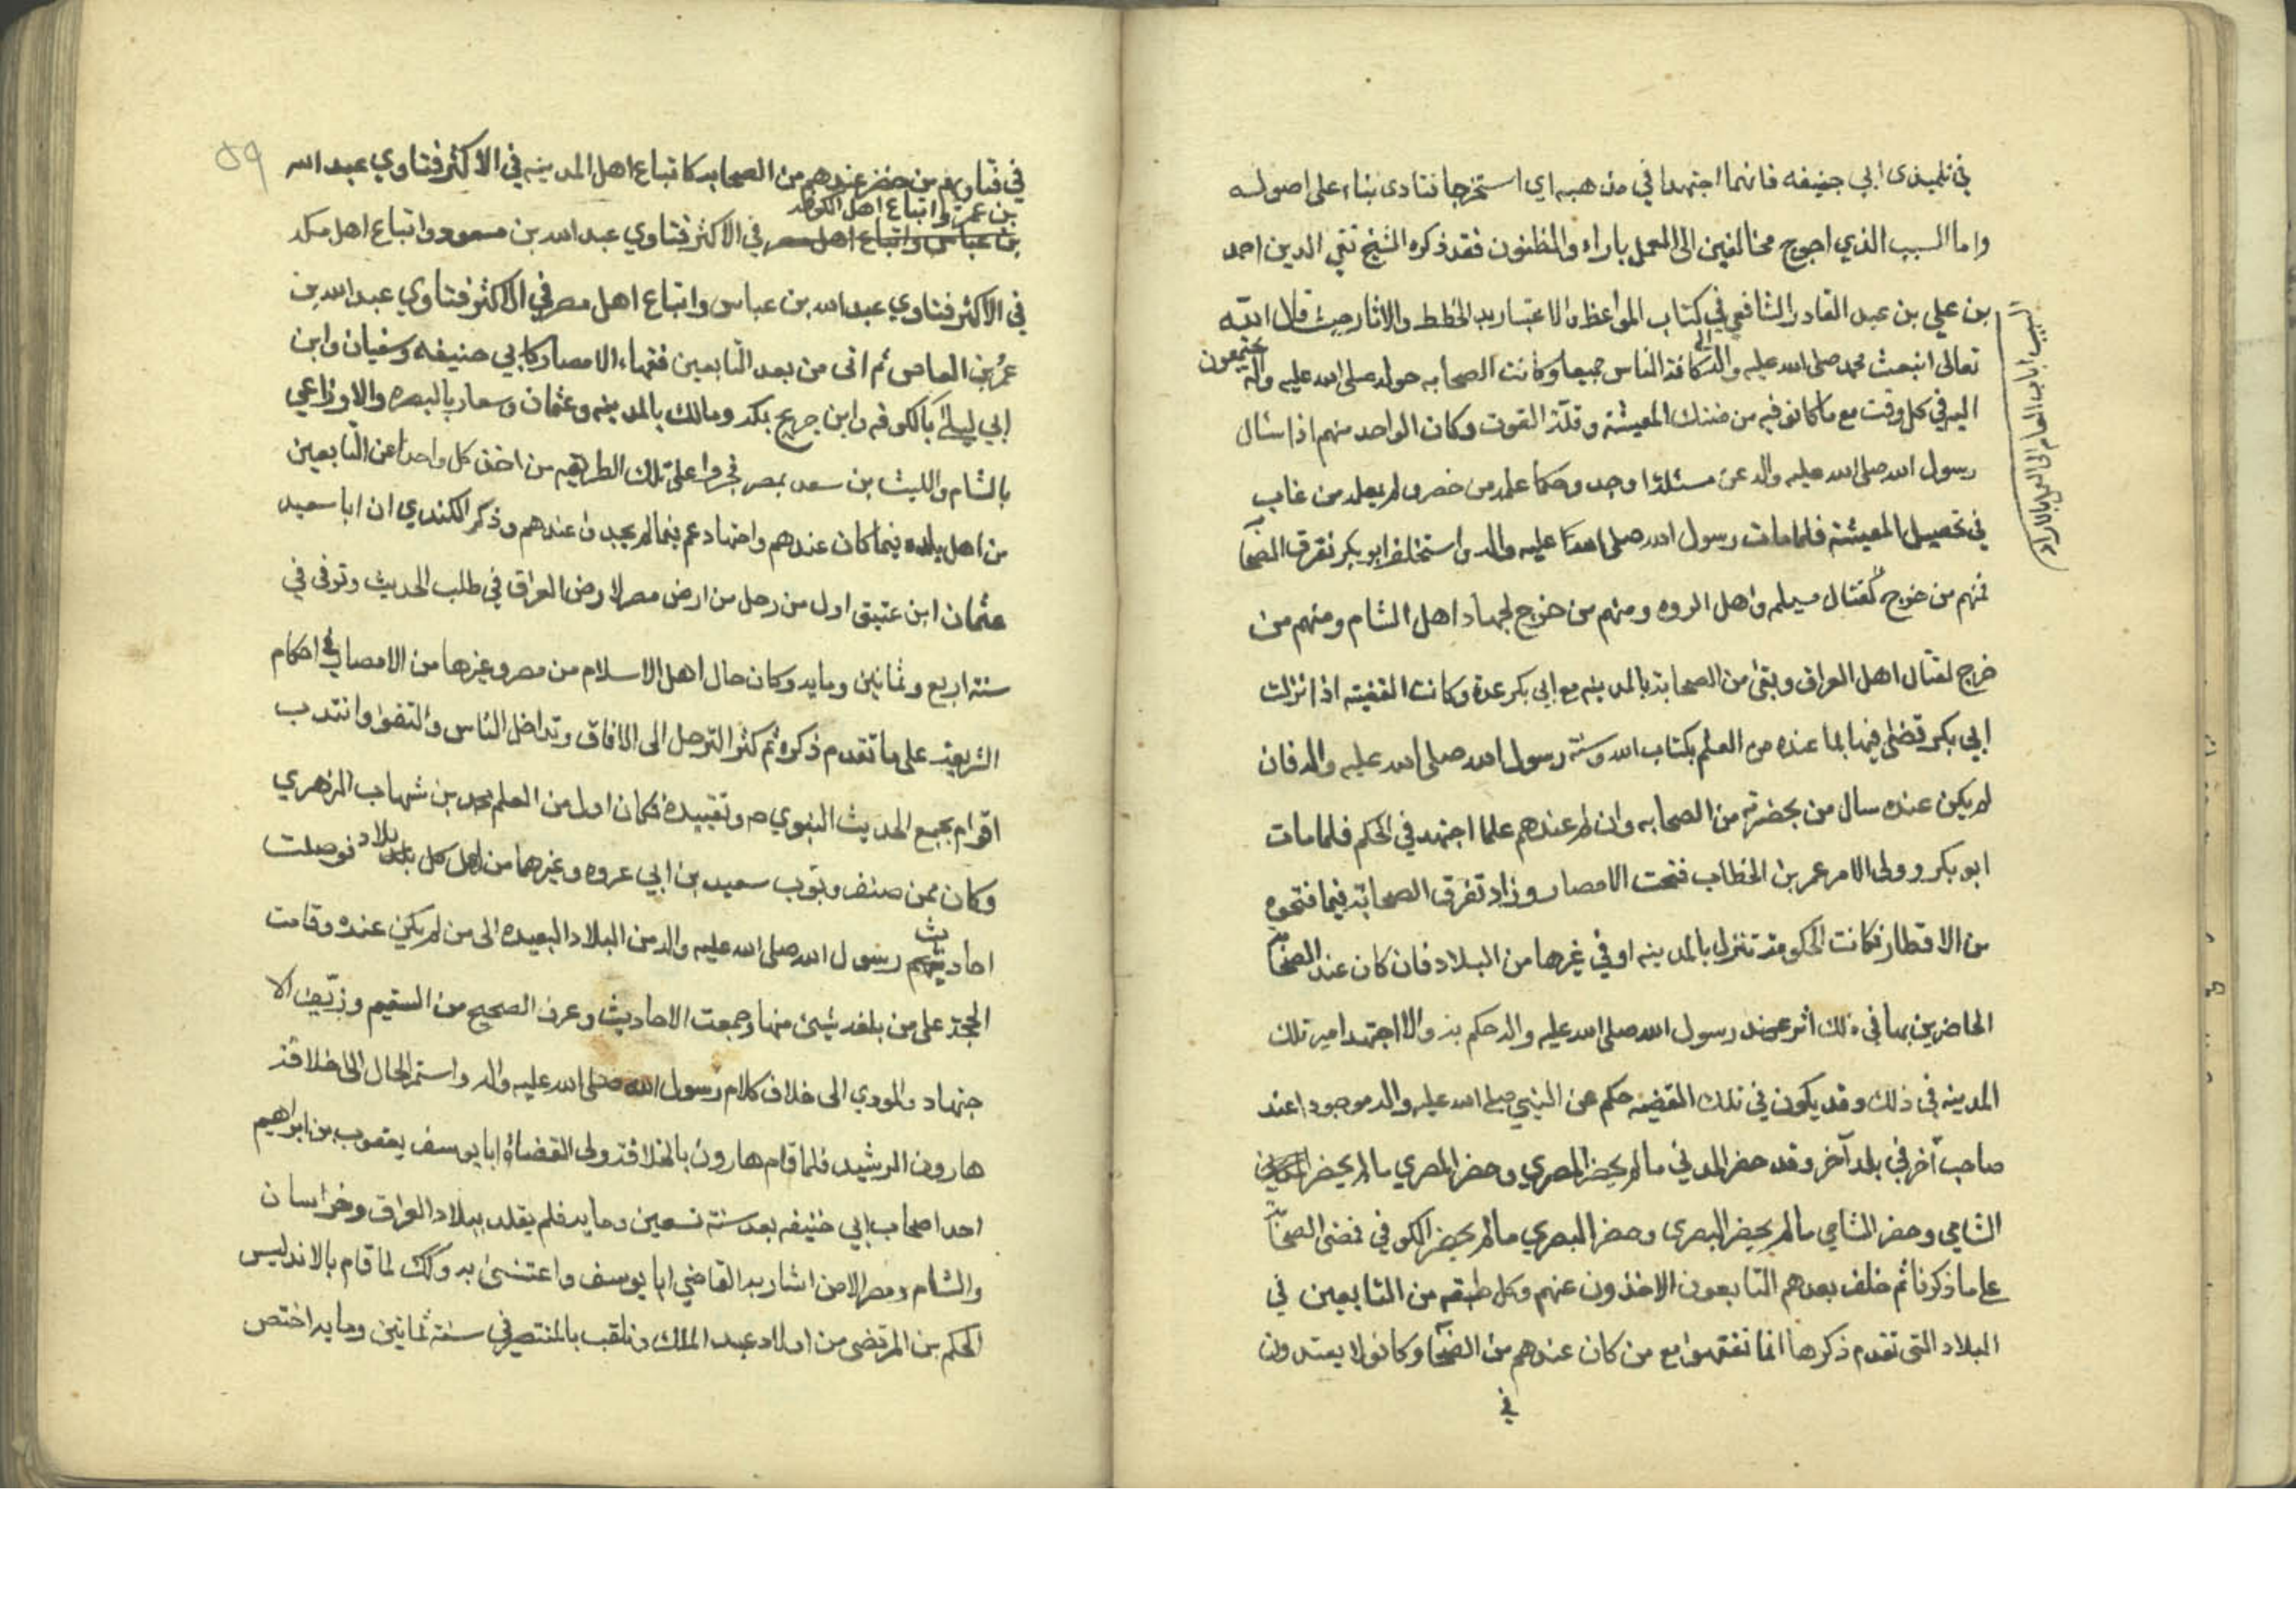 في تلميذى ابي حنيفه فانهما اجتهدا في مذهبه اي استخرجا فتاوى بناء على اصوله
واما السبب الذي احوج مخالفين الى العمل باراء والمظنون فقد ذكره الشيخ تقي الدين احمد
بن علي بن عبد القادر الشافعي في كتاب المواعظ والاعتبار بد الخطط والاثار حيث قال الله
تعالى انبعث محمد صلى الله عليه واله الى كافة الناس جميعا وكانت الصحابه حوله صلى الله عليه واله يجتمعون
اليه في كل وقت مع ما كانو فيه من ضنك المعيشة وقلة القوت وكان الواحد منهم اذا سئال
رسول الله صلى الله عليه واله عن مسئلة او وحكما علمه من حضر ولم يعلمه من غاب
في تحصيل المعيشة فلما مات رسول الله صلى الله عليه واله واستخلف ابو بكر تفرقت الصحابة
فمنهم من خرج لقتال مسيلمه واهل الرده ومنهم من خرج لجهاد اهل الشام ومنهم من
خرج لقتال اهل العراق وبقى من الصحابة بالمدينه مع ابي بكر عدة وكانت القضيته اذا نزلت
ابي بكر قضى فيها بما عنده من العلم بكتاب الله وسنة رسول الله صلى الله عليه واله فان
لم يكن عنده سال من بحضرته من الصحابه وان لم عندهم علما اجتهد في الحكم فلما مات
ابو بكر وولى الامر عمر بن الخطاب فتحت الامصار وزاد تفرق الصحابة فيما فتحوه
من الاقطار فكانت الحكومة تنزل بالمدينه او في غيرها من البلاد فان كان عند الصحابة
الحاضرين بها في ذلك اثر عند رسول الله صلى الله عليه واله حكم به والا اجتهد امير تلك
المدينه في ذلك وقد يكون في تلك القضيه حكم عن النبي صلى الله عليه واله موجودا عند
صاحب آخر في بلد آخر وقد حضر المدني ما لم يحضر المصري وحضر المصري ما لم يحضر
الشامي وحضر الشامي ما لم يحضر البصرى وحضر البصري ما لم يحضر الكوفي فمضى الصحابة
على ما ذكرنا ثم خلف بعدهم التابعون الاخذون عنهم وكل طبقه من التابعين في
البلاد التي تقدم ذكرها انما تفقهوا مع من كان عندهم من الصحابة وكانو لا يعتدون
في
السبب
٥٩
في فتاويهم من حضر عندهم من الصحابه كاتباع اهل المدينه في الاكثر فتاوي عبد الله
بن عمر واتباع اهل الكوفه
بن عباس واتباع اهل مصر في الاكثر فتاوي عبد الله بن مسعود واتباع اهل مكه
في الاكثر فتاوي عبد الله بن عباس واتباع اهل مصر في الاكثر فتاوي عبد الله بن
عمر بن العاص ثم اتى من بعد التابعين فقهاء الامصار كابي حنيفه وسفيان وابن
ابي ليلى بالكوفه وابن جريج بمكه ومالك بالمدينه وعثمان وسعار بالبصره والاوزاعي
بالشام والليث بن سعد بمصر فجروا على تلك الطريقه من اخذ كل واحدا عن التابعين
من اهل بلده فيما كان عندهم واجتهادهم فيما لم يجد عندهم وذكر الكندي ان ابا سعيد
عثمان ابن عتيق اول من رحل من ارض مصر لارض العراق في طلب الحديث وتوفى في
سنة اربع وثمانين ومايه وكان حال اهل الاسلام من مصر وغيرها من الامصار في احكام
الشريعة على ما تقدم ذكره ثم كثر الترحل الى الافاق وتداخل الناس والتقوا وانتدب
اقوام بجمع الحديث النبوي ص وتقييده فكان اول من العلم محمد بن شهاب الزهري
وكان ممن صنف وبوب سعيد بن ابي عروه وغيرهما من اهل كل بلاد فوصلت
احاديث رسول الله صلى الله عليه واله من البلاد البعيده الى من لم يكن عنده وقامت
الحجة على من بلغه شيئ منها وجمعت الاحاديث وعرف الصحيح من السقيم وزيف الا
جتهاد والمودي الى خلاف كلام رسول الله صلى الله عليه واله واستمر الحال الى خلافة
هارون الرشيد فلما قام هارون بالخلافة ولى القضاة ابا يوسف يعقوب بن ابراهيم
احد اصحاب ابي حنيفه بعد سنة تسعين ومايه فلم يقلد ببلاد العراق وخراسان
والشام ومصر الا من اشار به القاضي ابا يوسف واعتنئ به وكك لما قام بالاندليس
الحكم بن المرتضى من اولاد عبد الملك وتلقب بالمنتصر في سنة ثمانين ومايه اختص